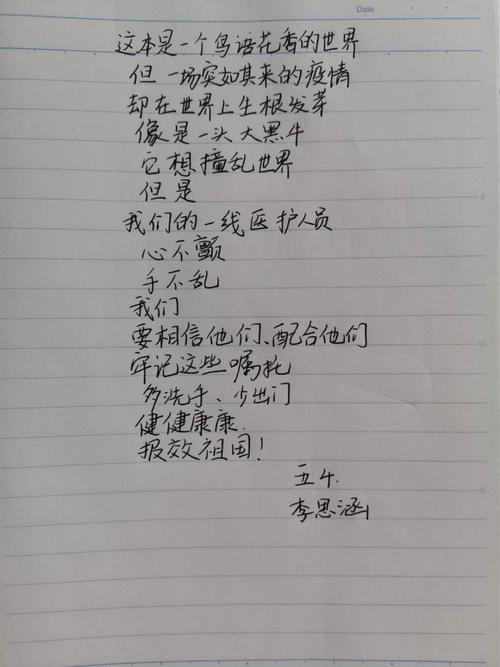 Date
这本是一个鸟语花香的世界
但一场突如其来的疫情
却在世界上生根发芽
像是一头大黑牛
它想撞乱世界
但是
我们的一线医护人员
心不颤
手不乱
我们
要相信他们、配合他们
牢记这些嘱托
多洗手、少出门
健健康康.
报效祖国!
五4.
李思涵